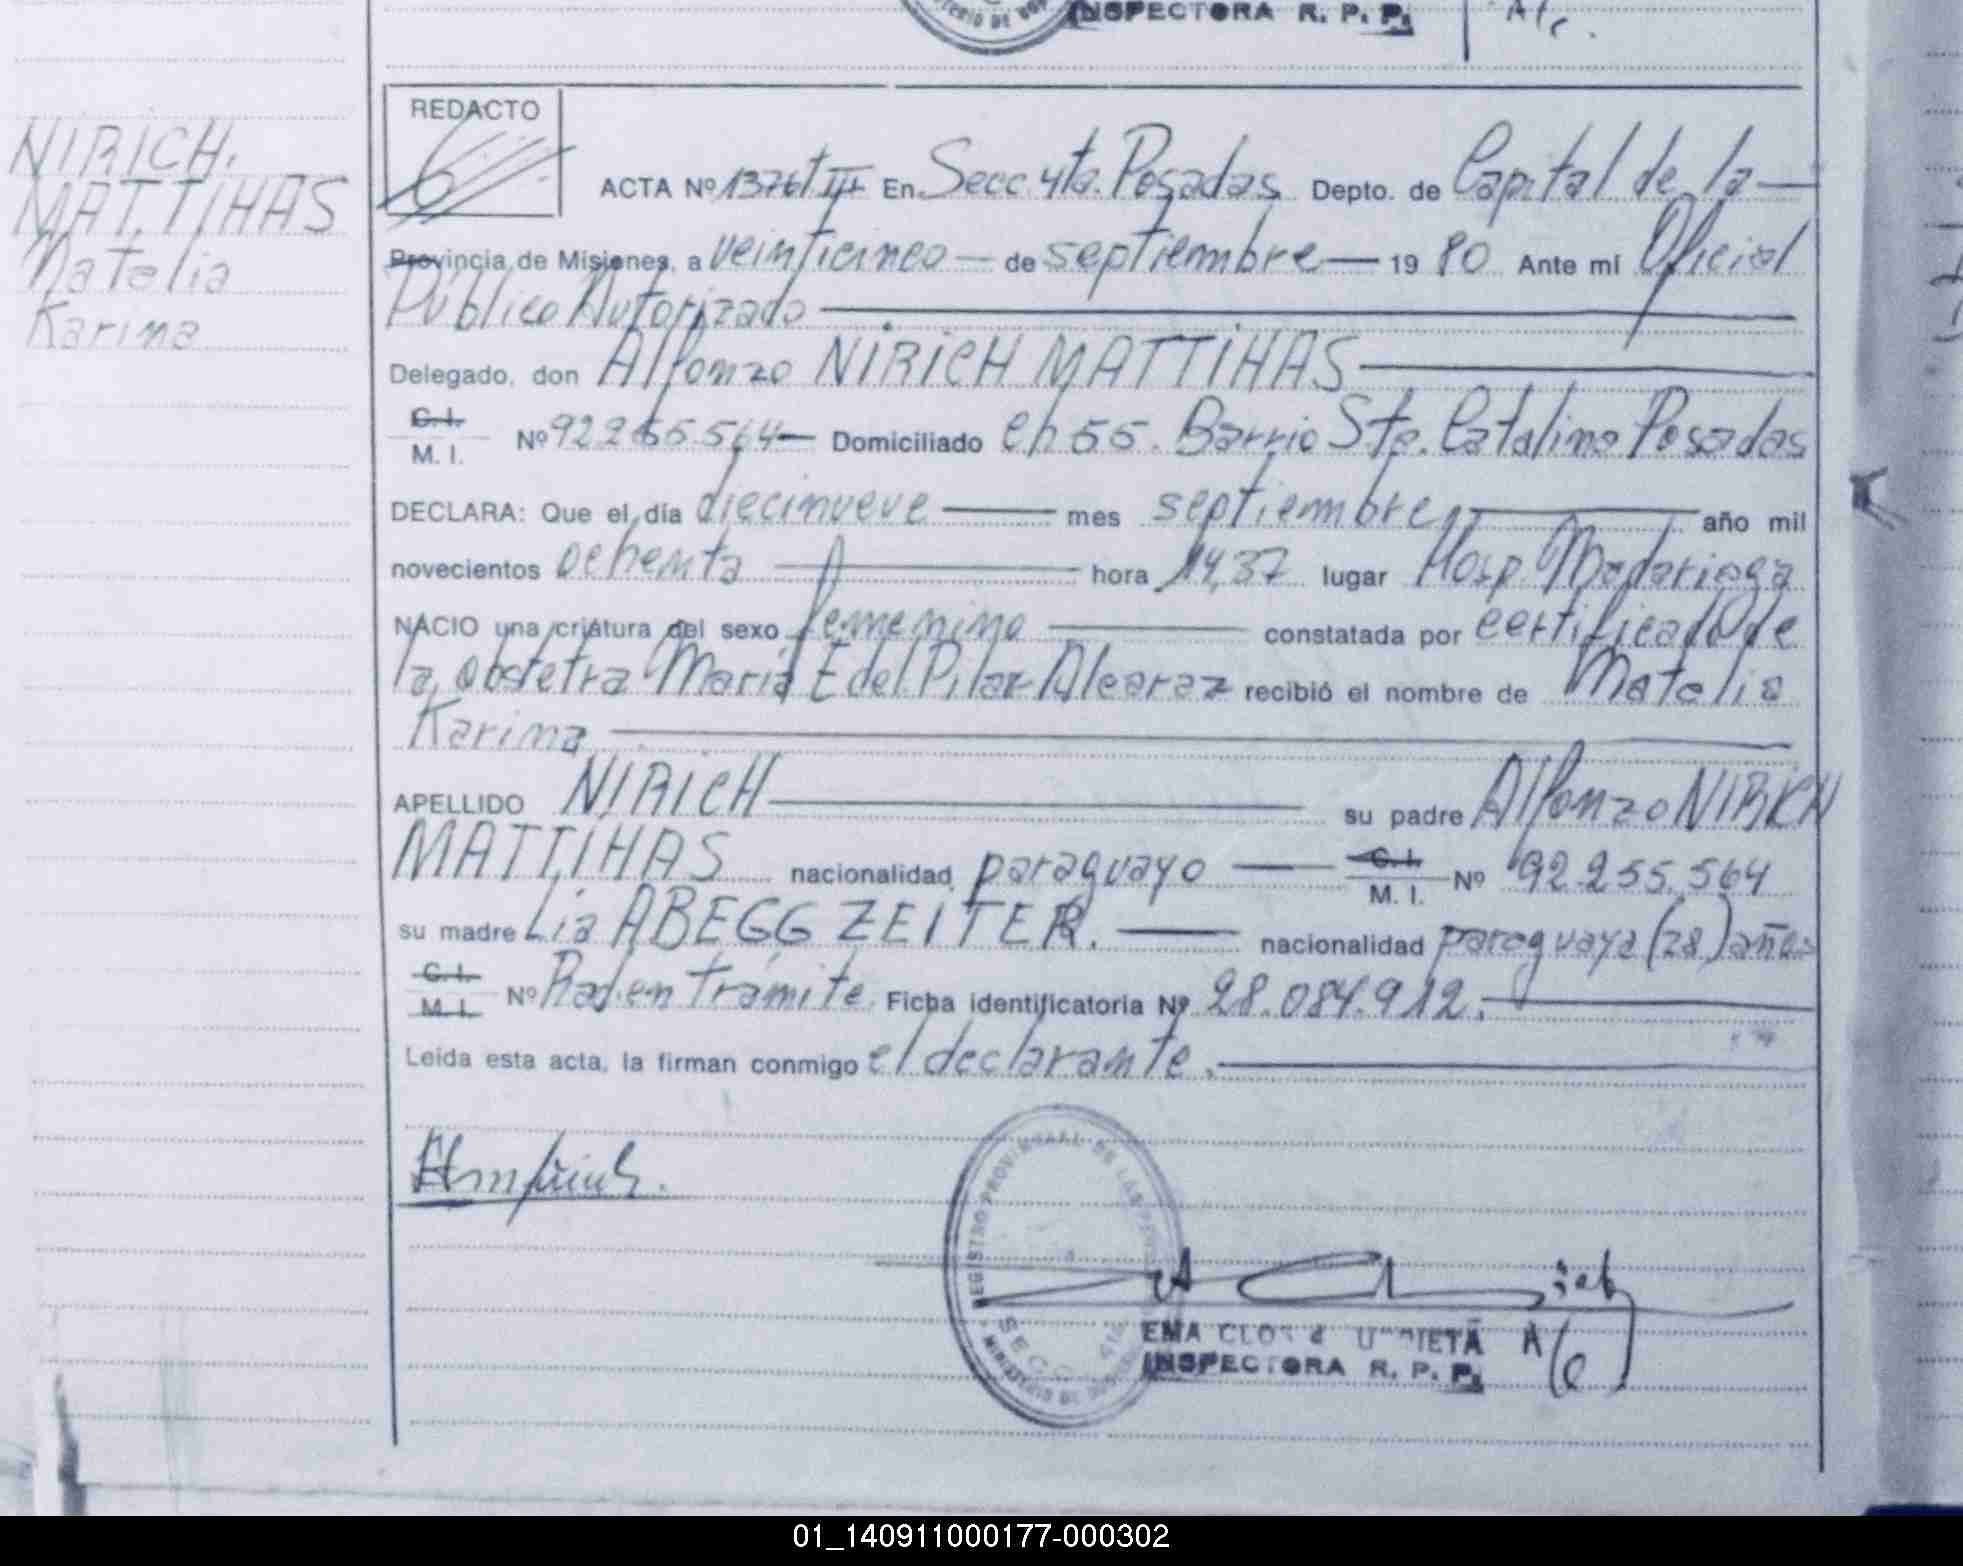 INSPECTORA R. P. P.
REDACTO
NIRICH
MATTIHAS
Natalia
Karina
ACTA Nº 1376 T III En Secc. 4ta. Posadas Depto. de Capital de la
Provincia de Misiones, a veinticinco de septiembre 19 80 Ante mí Oficial
Público Autorizado
Delegado, don Alfonzo NIRICH MATTIHAS
C. I.
M. I. Nº 92.255.564 Domiciliado ch 55. Barrio Sta. Catalina Posadas
DECLARA: Que el día diecinueve mes septiembre año mil
novecientos ochenta hora 14,37 lugar Hosp. Madariaga
NACIO una criatura del sexo femenino constatada por certificado de
la obstetra María E del Pilar Alcaraz recibió el nombre de Natalia
Karina
APELLIDO NIRICH su padre Alfonzo NIRICH
MATTIHAS nacionalidad paraguayo C. I.
M. I. Nº 92.255.564
su madre Lia ABEGG ZEITER. nacionalidad paraguaya (28) años
C. I.
M. I. Nº Rad. en trámite. Ficha identificatoria Nº 28.084.912.
Leída esta acta, la firman conmigo el declarante.
REGISTRO PROVINCIAL DE LAS
SECC. 4ta
MINISTERIO DE
EMA
INSPECTORA R. P. P.
01_140911000177-000302